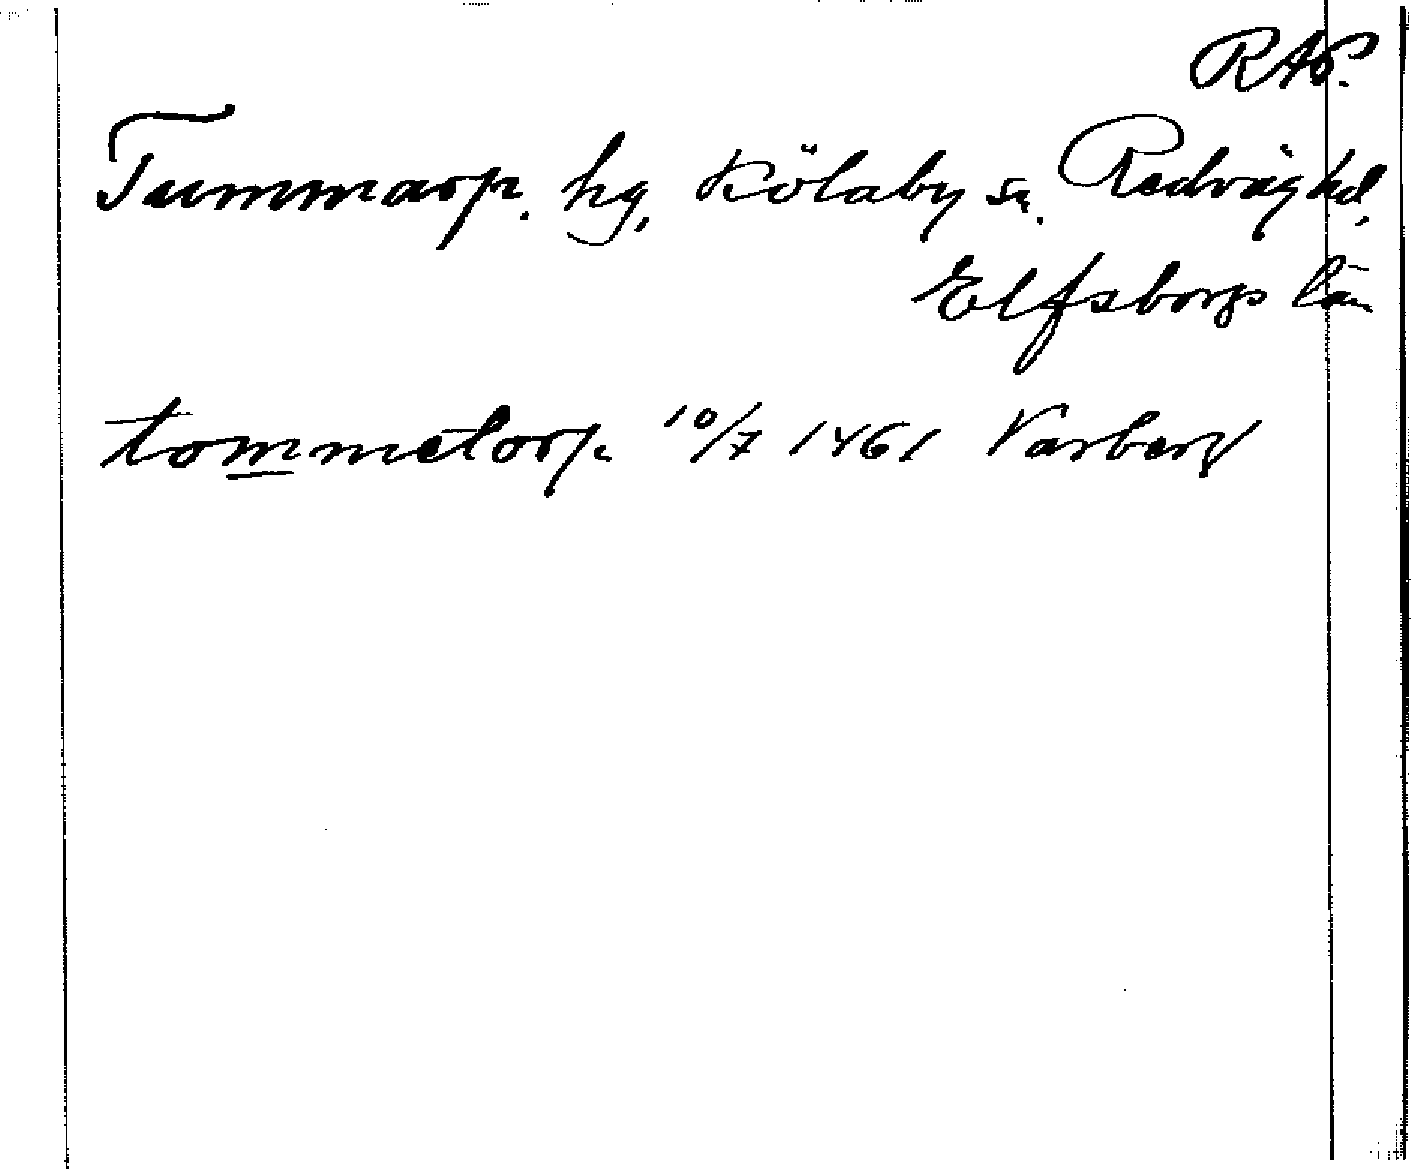 RAP.
Tummarp. hg, Kölaby sn. Redväg hd,
Elfsborgs län
tommetorp 10/7 1461 Varberg